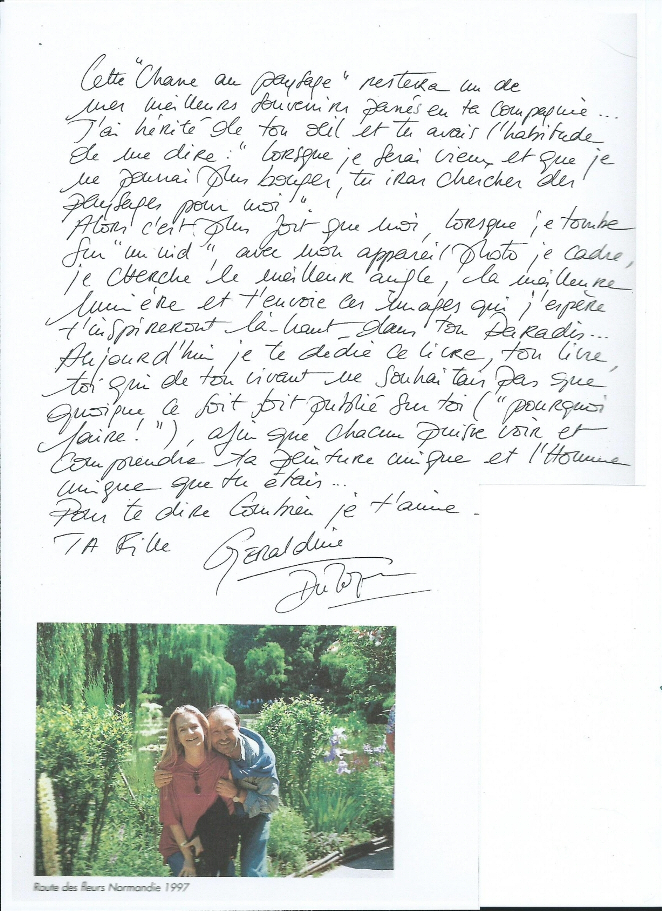 Cette "Chasse au paysage" restera un de
mes meilleurs souvenirs passés en ta compagnie...
J'ai hérité de ton œil et tu avais l'habitude
de me dire : "Lorsque je serai vieux et que je
ne pourrai plus bouger, tu iras chercher des
paysages pour moi".
Alors c'est plus fort que moi, lorsque je tombe
sur "un nid", avec mon appareil photo je cadre,
je cherche le meilleur angle, la meilleure
lumière et t'envoie ces images qui j'espère
t'inspireront là-haut dans ton Paradis...
Aujourd'hui je te dédie ce livre, ton livre,
toi qui de ton vivant ne souhaitais pas que
quoique ce soit soit publié sur toi ("pourquoi
faire!"), afin que chacun puisse voir et
comprendre ta peinture unique et l'Homme
unique que tu étais...
Pour te dire combien je t'aime.
TA Fille Géraldine
Route des fleurs Normandie 1997